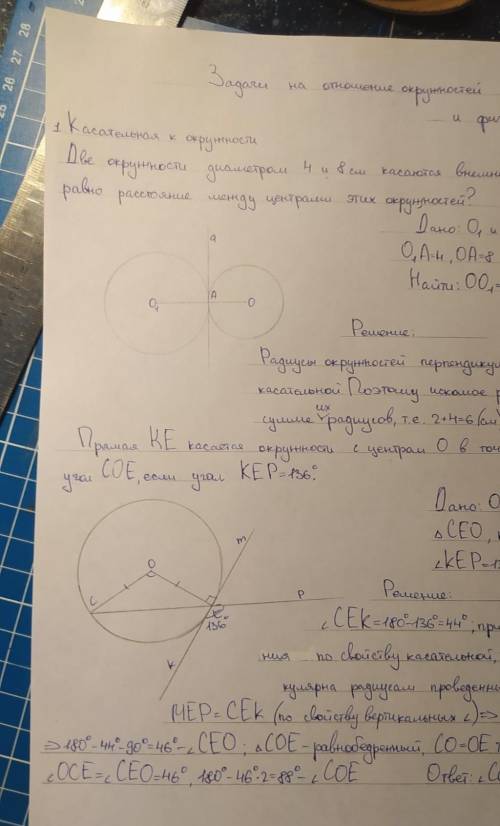 Задачи на отношение окружностей
и фи
1. Касательная к окружности
Две окружности диаметром 4 и 8 см касаются внешн
равно расстояние между центрами этих окружностей?
Дано: O₁ и
O₁A=4, OA=8
Найти: OO₁=
a
O₁ A O
Решение:
Радиусы окружностей перпендику
касательной Поэтому искомое р
сумме их радиусов, т.е. 2+4=6 (см
Прямая KE касается окружности с центром O в точ
угол COE, если угол KEP=136°.
Дано: O
△CEO,
∠KEP=13
O
m
C
E
P
136°
K
Решение:
∠CEK=180°-136°=44°; при
ния по свойству касательной,
кулярна радиусам проведенны
MEP=CEK (по свойству вертикальных ∠) ⇒
⇒ 180°-44°-90°=46°-∠CEO; △COE - равнобедренный, CO=OE
∠OCE=∠CEO=46°, 180°-46°·2=88°-∠COE Ответ: ∠C
28
27
26
25